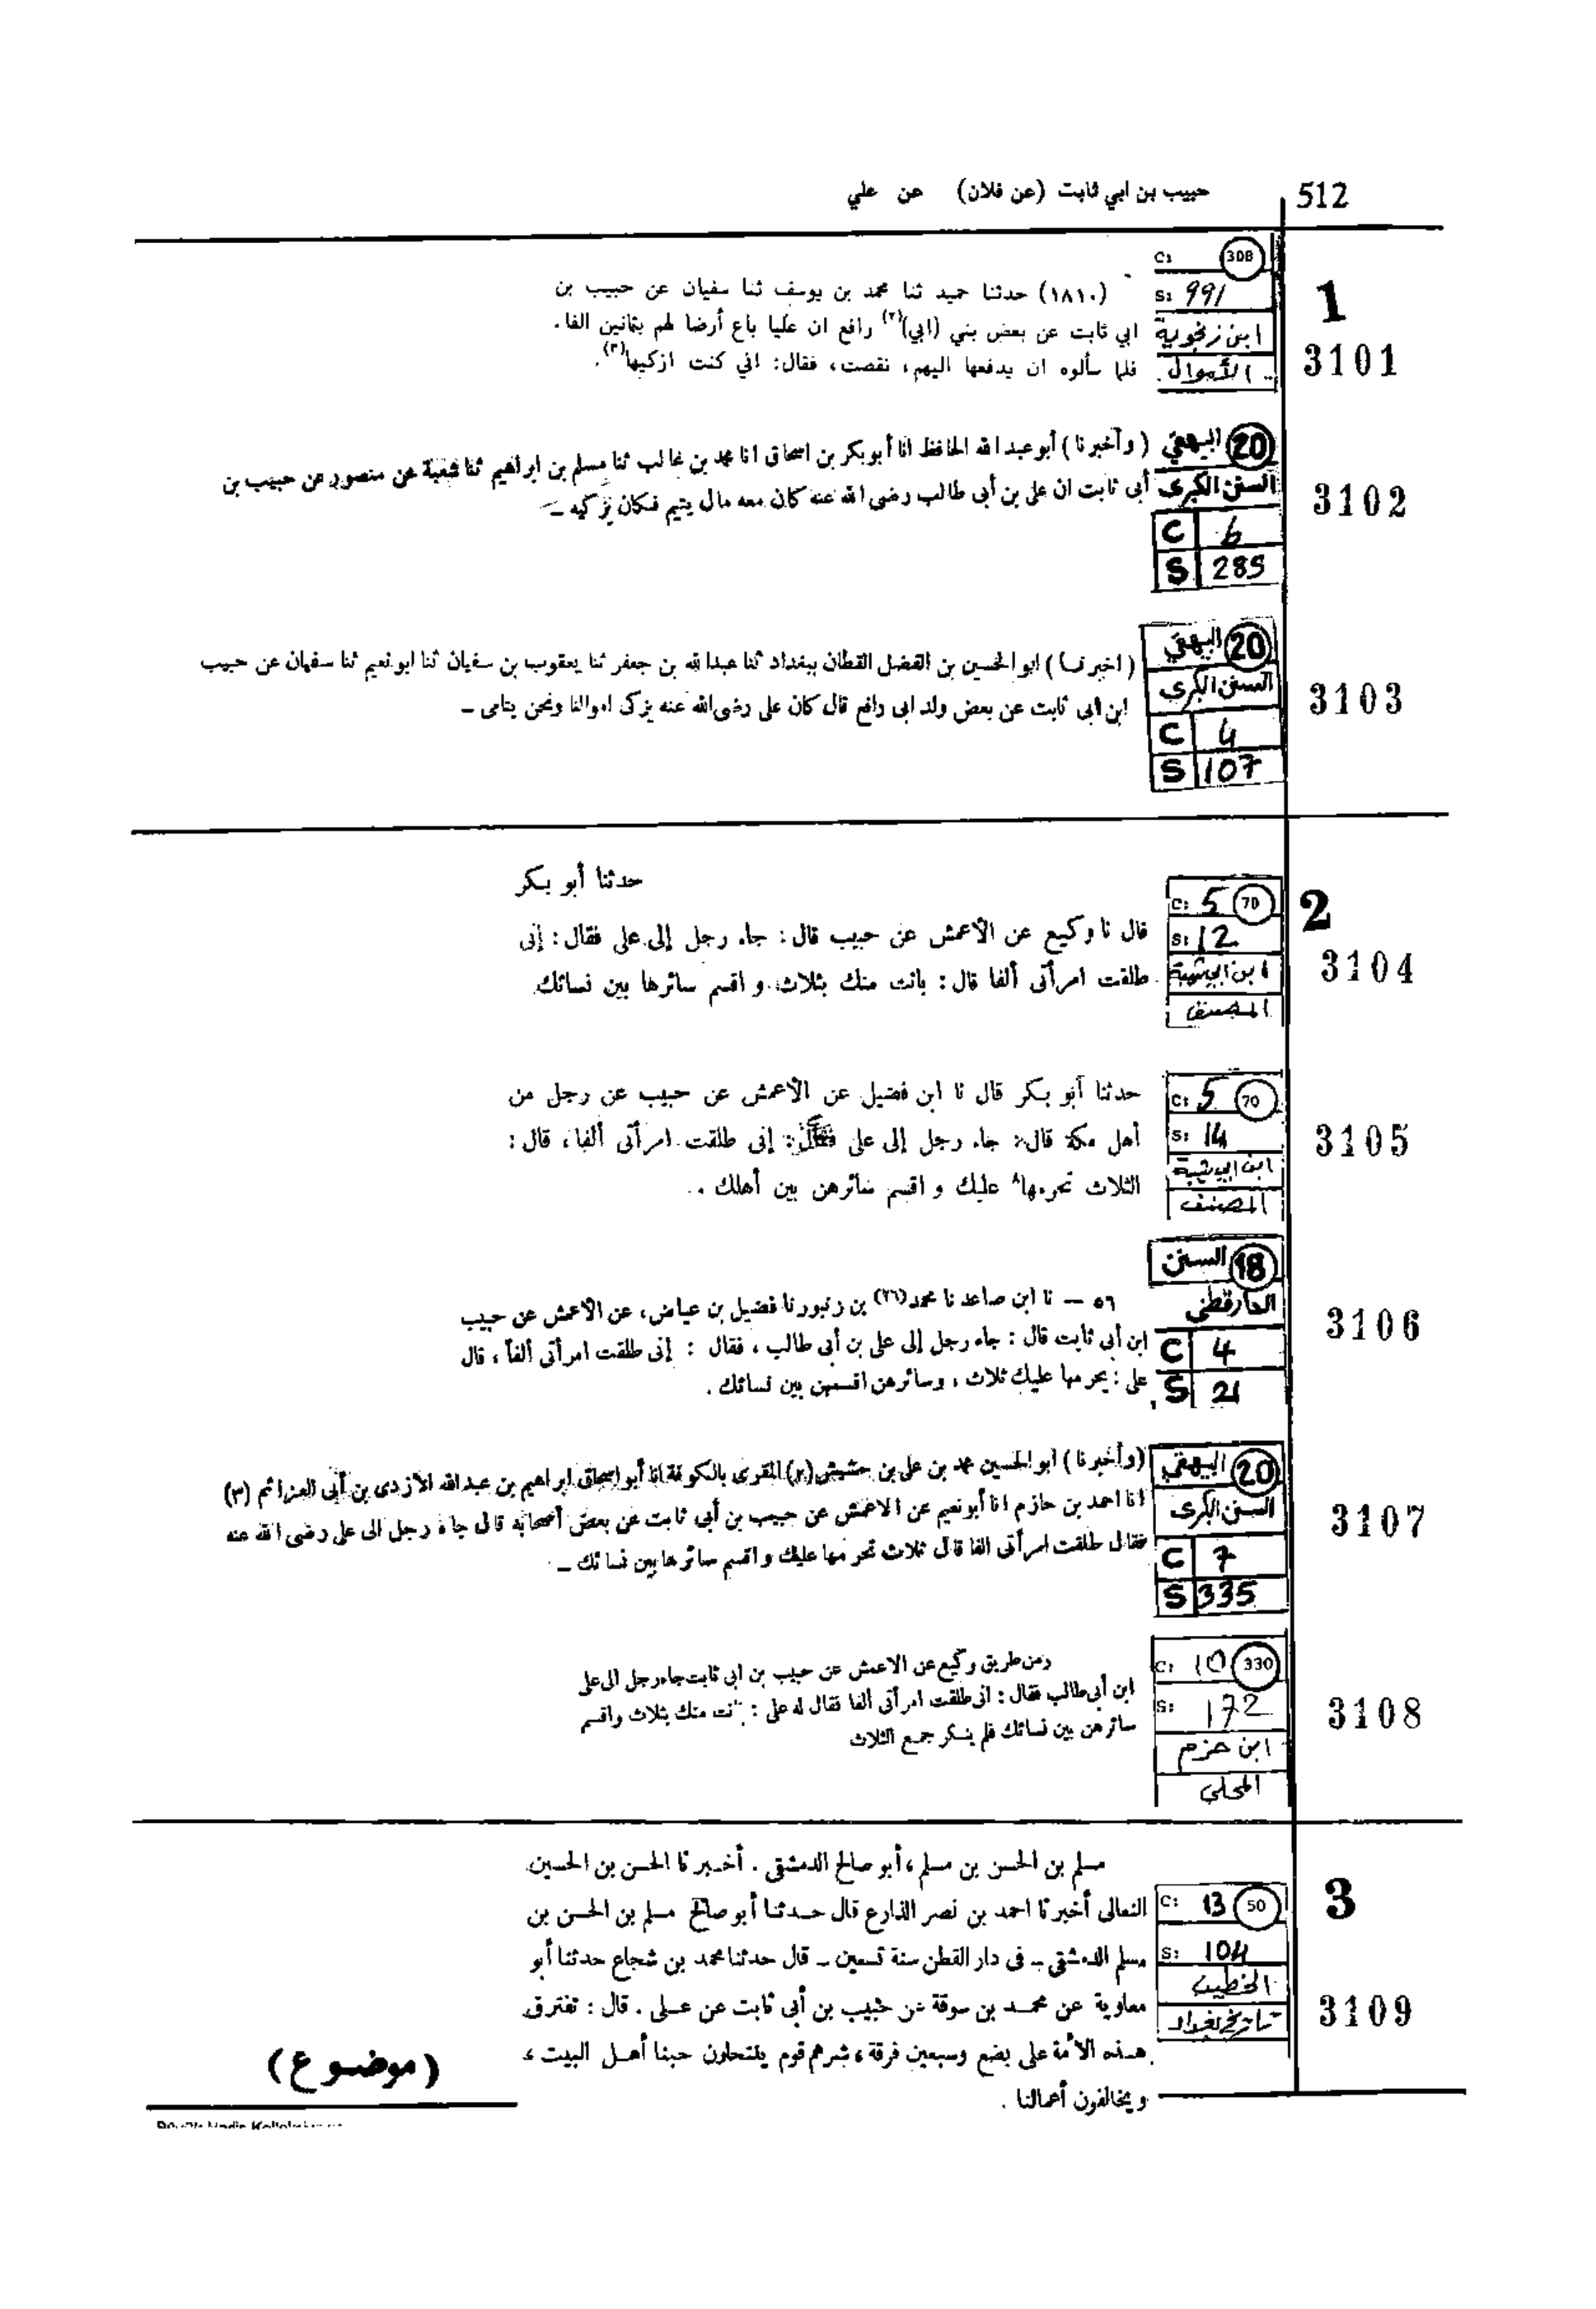 512
حبيب بن ابي ثابت (عن فلان) عن علي
1
3101
C: 30B
S: 991
ابن زنجوية
الأموال
(١٨١٠) حدثنا حميد ثنا محمد بن يوسف ثنا سفيان عن حبيب بن
ابي ثابت عن بعض بني (ابي)(٢) رافع ان عليا باع أرضا لهم بثمانين الفا.
فلما سألوه ان يدفعها اليهم، نقصت، فقال: اني كنت ازكيها(٣).
3102
20 البيهقي
السنن الكبرى
C 6
S 285
( وأخبرنا ) أبو عبد الله الحافظ انا أبو بكر بن اسحاق انا محمد بن غالب ثنا مسلم بن ابراهيم ثنا شعبة عن منصور عن حبيب بن
أبى ثابت ان على بن أبى طالب رضى الله عنه كان معه مال يتيم فكان يزكيه ـ
3103
20 البيهقي
السنن الكبرى
C 4
S 107
( اخبرنا ) ابو الحسين بن الفضل القطان ببغداد ثنا عبد الله بن جعفر ثنا يعقوب بن سفيان ثنا ابو نعيم ثنا سفيان عن حبيب
ابن ابى ثابت عن بعض ولد ابى رافع قال كان على رضى الله عنه يزكى اموالنا ونحن يتامى ـ
2
3104
C: 5 70
S: 12
ابن ابي شيبة
المصنف
حدثنا أبو بكر
قال نا وكيع عن الأعمش عن حبيب قال : جاء رجل إلى على فقال : إنى
طلقت امرأتى ألفا قال : بانت منك بثلاث و اقسم سائرها بين نسائك
3105
C: 5 70
S: 14
ابن ابي شيبة
المصنف
حدثنا أبو بكر قال نا ابن فضيل عن الأعمش عن حبيب عن رجل من
أهل مكة قال : جاء رجل إلى على فقال : إنى طلقت امرأتى ألفا ، قال :
الثلاث تحرمها٨ عليك و اقسم سائرهن بين أهلك .
3106
18 السنن
الدارقطني
C 4
S 21
٥٦ — نا ابن صاعد نا محمد (٢٦) بن زنبور نا فضيل بن عياض ، عن الأعمش عن حبيب
ابن أبى ثابت قال : جاء رجل إلى على بن أبى طالب ، فقال : إنى طلقت امرأتى ألفاً ، قال
على : يحرمها عليك ثلاث ، وسائرهن اقسمهن بين نسائك .
3107
20 البيهقي
السنن الكبرى
C 7
S 335
(وأخبرنا ) ابو الحسين محمد بن على بن حشيش (٢) المقرى بالكوفة انا أبو اسحاق ابراهيم بن عبد الله الأزدى بن أبى العزائم (٣)
انا احمد بن حازم انا أبو نعيم عن الاعمش عن حبيب بن أبى ثابت عن بعض أصحابه قال جاء رجل الى على رضى الله عنه
فقال طلقت امرأتى الفا قال ثلاث تحرمها عليك و اقسم سائرها بين نسائك ـ
3108
C: 10 330
S: 172
ابن حزم
المحلي
ومن طريق وكيع عن الاعمش عن حبيب بن ابى ثابت جاء رجل الى على
ابن أبى طالب فقال : انى طلقت امرأتى ألفا فقال له على : بانت منك بثلاث واقسم
سائرهن بين نسائك فلم ينكر جمع الثلاث
3
3109
C: 13 50
S: 104
الخطيب
تاريخ بغداد
مسلم بن الحسن بن مسلم ، أبو صالح الدمشقى . أخبرنا الحسن بن الحسين
النعالى أخبرنا احمد بن نصر الذارع قال حدثنا أبو صالح مسلم بن الحسن بن
مسلم الدمشقى ـ فى دار القطن سنة تسعين ـ قال حدثنا محمد بن شجاع حدثنا أبو
معاوية عن محمد بن سوقة عن حبيب بن أبى ثابت عن على . قال : تفترق
هذه الأمة على بضع وسبعين فرقة ، شرهم قوم ينتحلون حبنا أهل البيت ،
ويخالفون أعمالنا .
(موضوع)